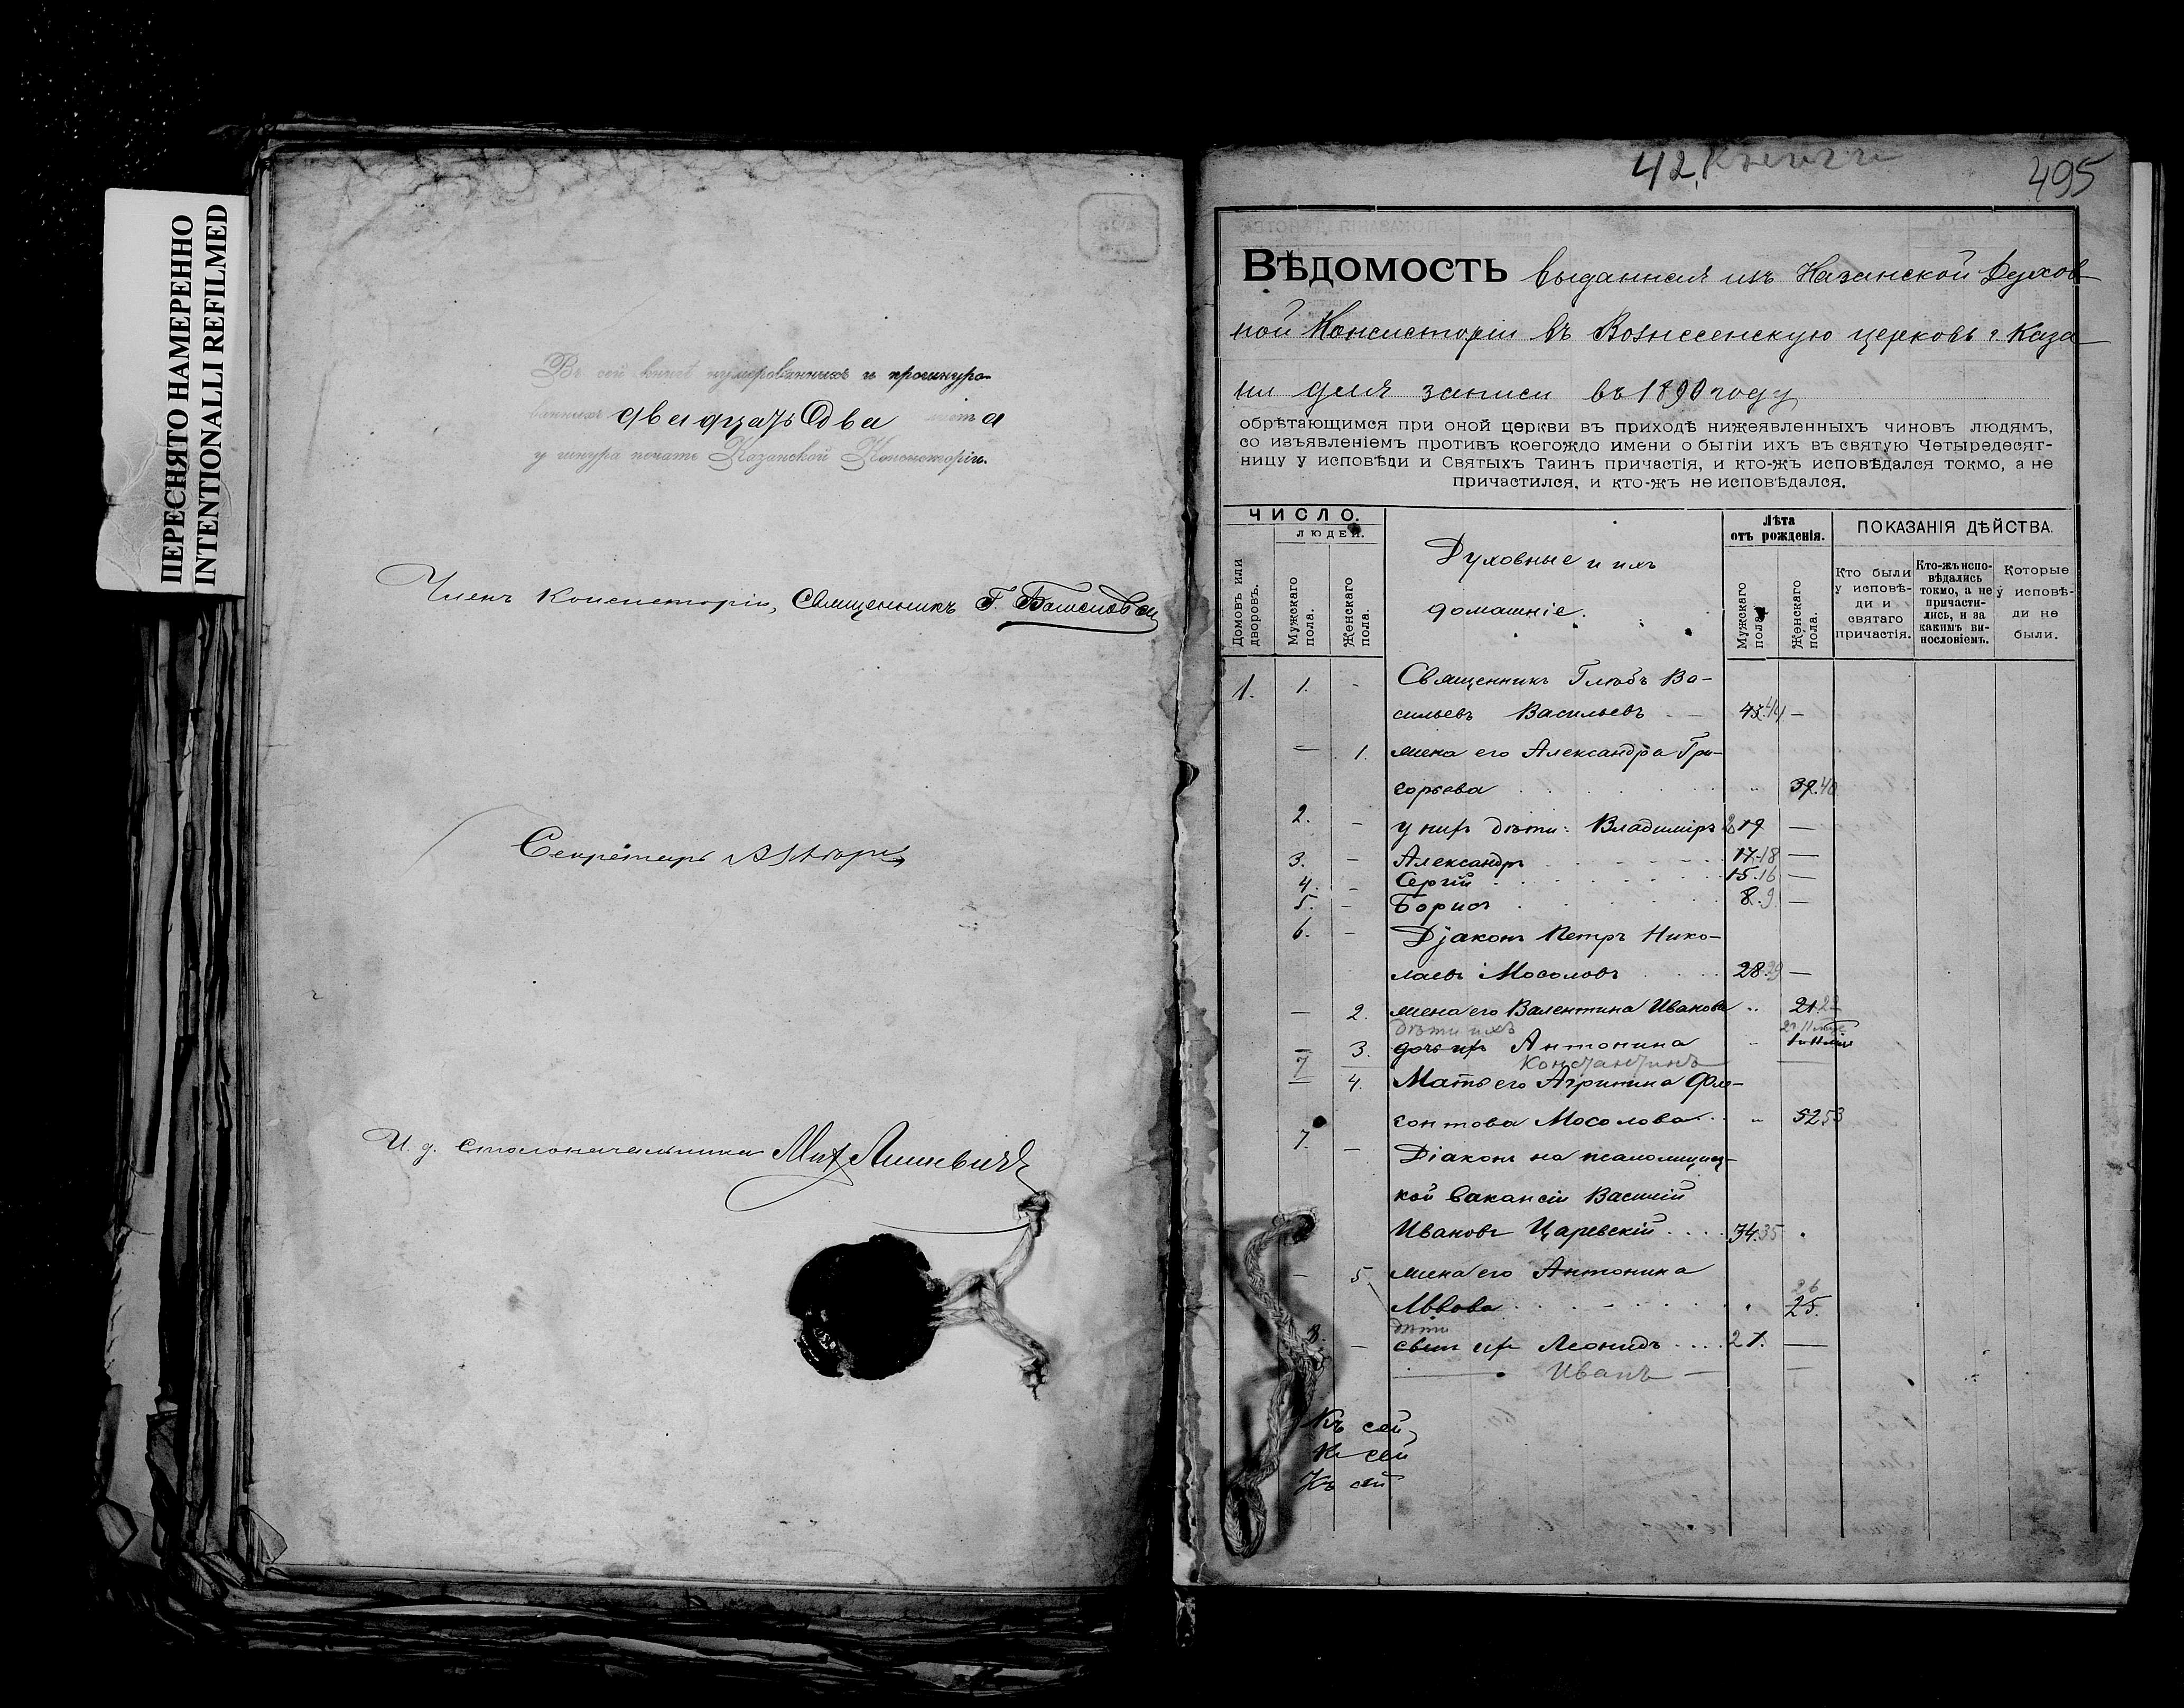 ПЕРЕСНЯТО НАМЕРЕННО
INTENTIONALLI REFILMED
Въ сей книгѣ нумерованныхъ и прошнуро-
ванныхъ двадцать два листа
у шнура печать Казанской Консисторіи.
Членъ Консисторіи, Священникъ Г.
Секретарь
И. д. столоначальника Мих
42
495
ВѢДОМОСТЬ выданная изъ Казанской Духов-
ной Консисторіи въ Вознесенскую церковь г. Каза-
ни для записи въ 1890 году
обрѣтающимся при оной церкви въ приходѣ нижеявленныхъ чиновъ людямъ,
со изъявленіемъ противъ коегождо имени о бытіи ихъ въ святую Четыредесят-
ницу у исповѣди и Святыхъ Таинъ причастія, и кто-жъ исповѣдался токмо, а не
причастился, и кто-жъ не исповѣдался.
ЧИСЛО.
ЛЮДЕЙ.
Домовъ или дворовъ.
Мужскаго пола.
Женскаго пола.
Духовные и ихъ
домашніе.
Лѣта
отъ рожденія.
Мужскаго пола.
Женскаго пола.
ПОКАЗАНІЯ ДѢЙСТВА.
Кто были у исповѣ-ди и святаго причастія.
Кто-жъ испо-вѣдались токмо, а не причасти-лись, и за какимъ ви-нословіемъ.
Которые у исповѣ-ди не были.
1. 1. - Священникъ Глѣбъ Ва-
сильевъ Васильевъ 43.44 —
— 1. жена его Александра Гри-
горьева 39.40
2. - у нихъ дѣти: Владиміръ 19 —
3. - Александръ 17.18 —
4. - Сергій 15.16 —
5. - Борисъ 8.9. —
6. - Діаконъ Петръ Нико-
лаевъ Мосоловъ 28.29 —
— 2. жена его Валентина Иванова 21.22
дѣти ихъ
— 3. дочь ихъ Антонина
7 Константинъ
— 4. Мать его Агрипина
сонтова Мосолова 52.53
7. - Діаконъ на псаломщиц-
кой вакансіи Василій
Ивановъ Царевскій 34.35
— 5 жена его Антонина
Львова 25. 26
дѣти
8. - сынъ ихъ Леонидъ 2 1. —
Иванъ —
Къ сей
Къ сей
Къ сей